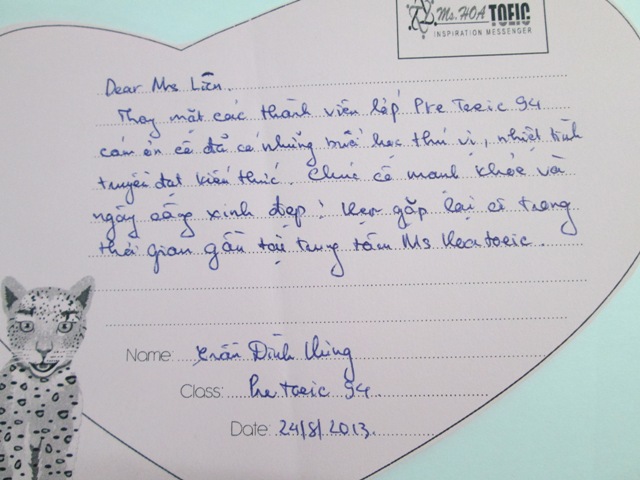 Ms. HOA TOEIC
INSPIRATION MESSENGER
Dear Ms Liên.
Thay mặt các thành viên lớp Pre Toeic 94
cám ơn cô đã có những buổi học thú vị, nhiệt tình
truyền đạt kiến thức. Chúc cô mạnh khỏe và
ngày càng xinh đẹp! Hẹn gặp lại cô trong
thời gian gần tại trung tâm Ms Hoa toeic.
Name: Trần Đình Hùng
Class: Pre toeic 94
Date: 24/8/2013.